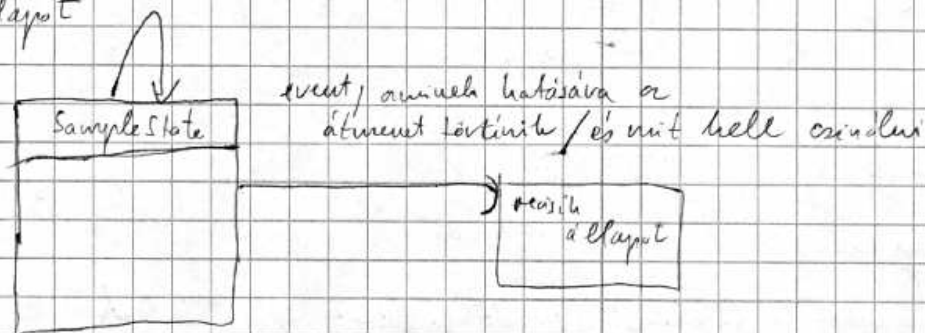 állapot
SampleState
event, aminek hatására a
átmenet történik / és mit kell csinálni
másik
állapot